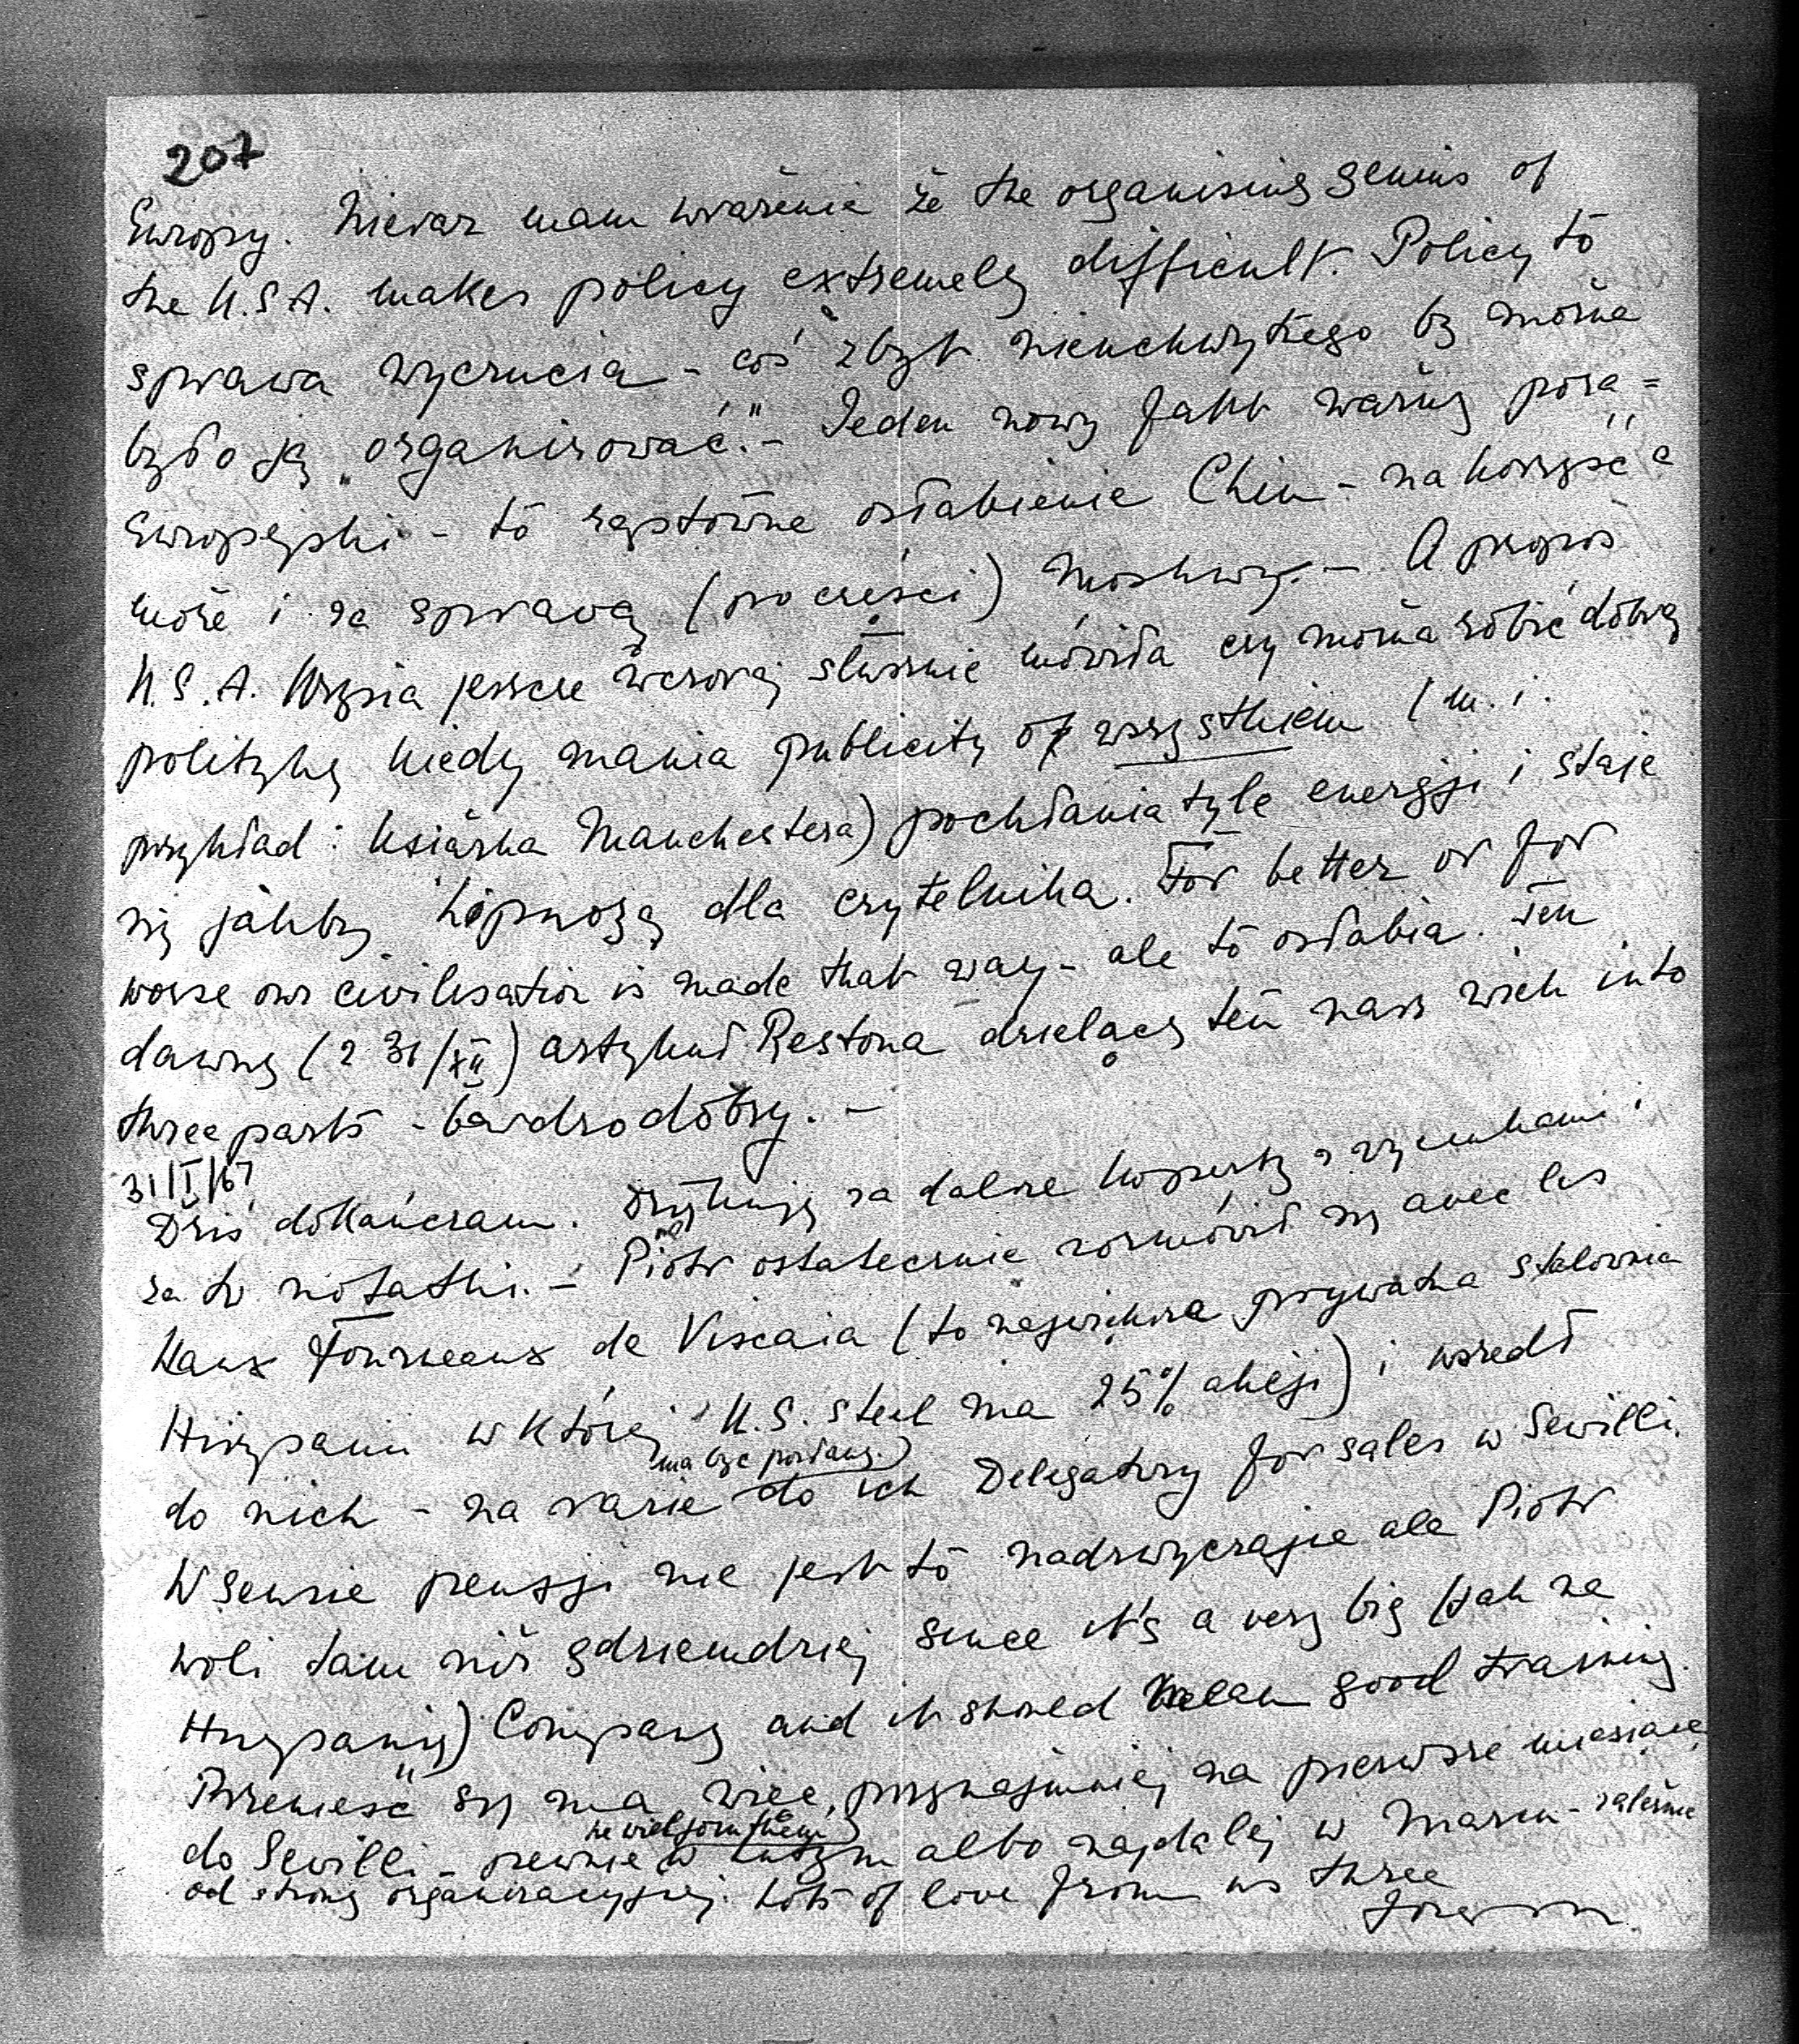 207
Europy. Nieraz mam wrażenie że the organising genius of
the U.S.A. makes policy extremely difficult. Policy to
sprawa wyczucia - coś zbyt nieuchwytnego by można
było ją „organizować". - Jeden nowy fakt ważny poza =
europejski - to gwałtowne osłabienie Chin - na korzyść a
może i za sprawą (po części) Moskwy. - A propos
U.S.A. Krzysia jeszcze wczoraj słusznie mówiła czy można robić dobrą
politykę kiedy mania publicity of wszystkiem (m. i.
przykład: książka Manchestera) pochłania tyle energji i staje
się jakby hipnozą dla czytelnika. For better or for
worse our civilisation is made that way - ale to osłabia. Ten
dawny (z 31/XII) artykuł Restona dzielący ten nasz wiek into
three parts - bardzo dobry. -
31/I/67
Dziś dokańczam. Dziękuję za dalsze koperty z wycinkami i
za te notatki. - Piotr ostatecznie rozmówił się avec les
Haux Fourneaux de Viscaia (to największa prywatna stalownia
Hiszpanii w której U.S. steel ma 25% akcji) i wszedł
ma być posłany)
do nich - na razie do ich Delegatury for sales w Sewilli.
W sensie pensji nie jest to nadzwyczajne ale Piotr
woli tam niż gdzieindziej since it's a very big (jak na
Hiszpanię) Company and it should mean good training.
Przenieść się ma więc, przynajmniej na pierwsze miesiące,
do Sewilli - pewnie w lutym albo najdalej w Marcu - zależnie
od strony organizacyjnej. Lots of love from us three